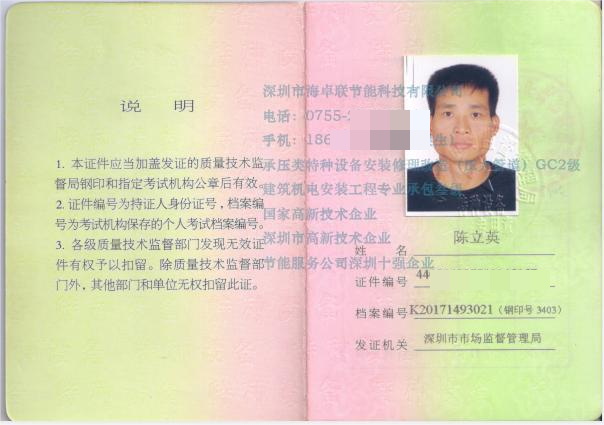 说 明
1. 本证件应当加盖发证的质量技术监
督局钢印和指定考试机构公章后有效。
2. 证件编号为持证人身份证号，档案编
号为考试机构保存的个人考试档案编号。
3. 各级质量技术监督部门发现无效证
件有权予以扣留。除质量技术监督部
门外，其他部门和单位无权扣留此证。
深圳市海卓联节能科技有限公司
电话：0755-2
手机：186 生）
承压类特种设备安装修理改造（压力管道）GC2级
建筑机电安装工程专业承包叁级
国家高新技术企业
深圳市高新技术企业
节能服务公司深圳十强企业
姓 名 陈立英
证件编号 44
档案编号 K20171493021（钢印号 3403）
发证机关 深圳市市场监督管理局